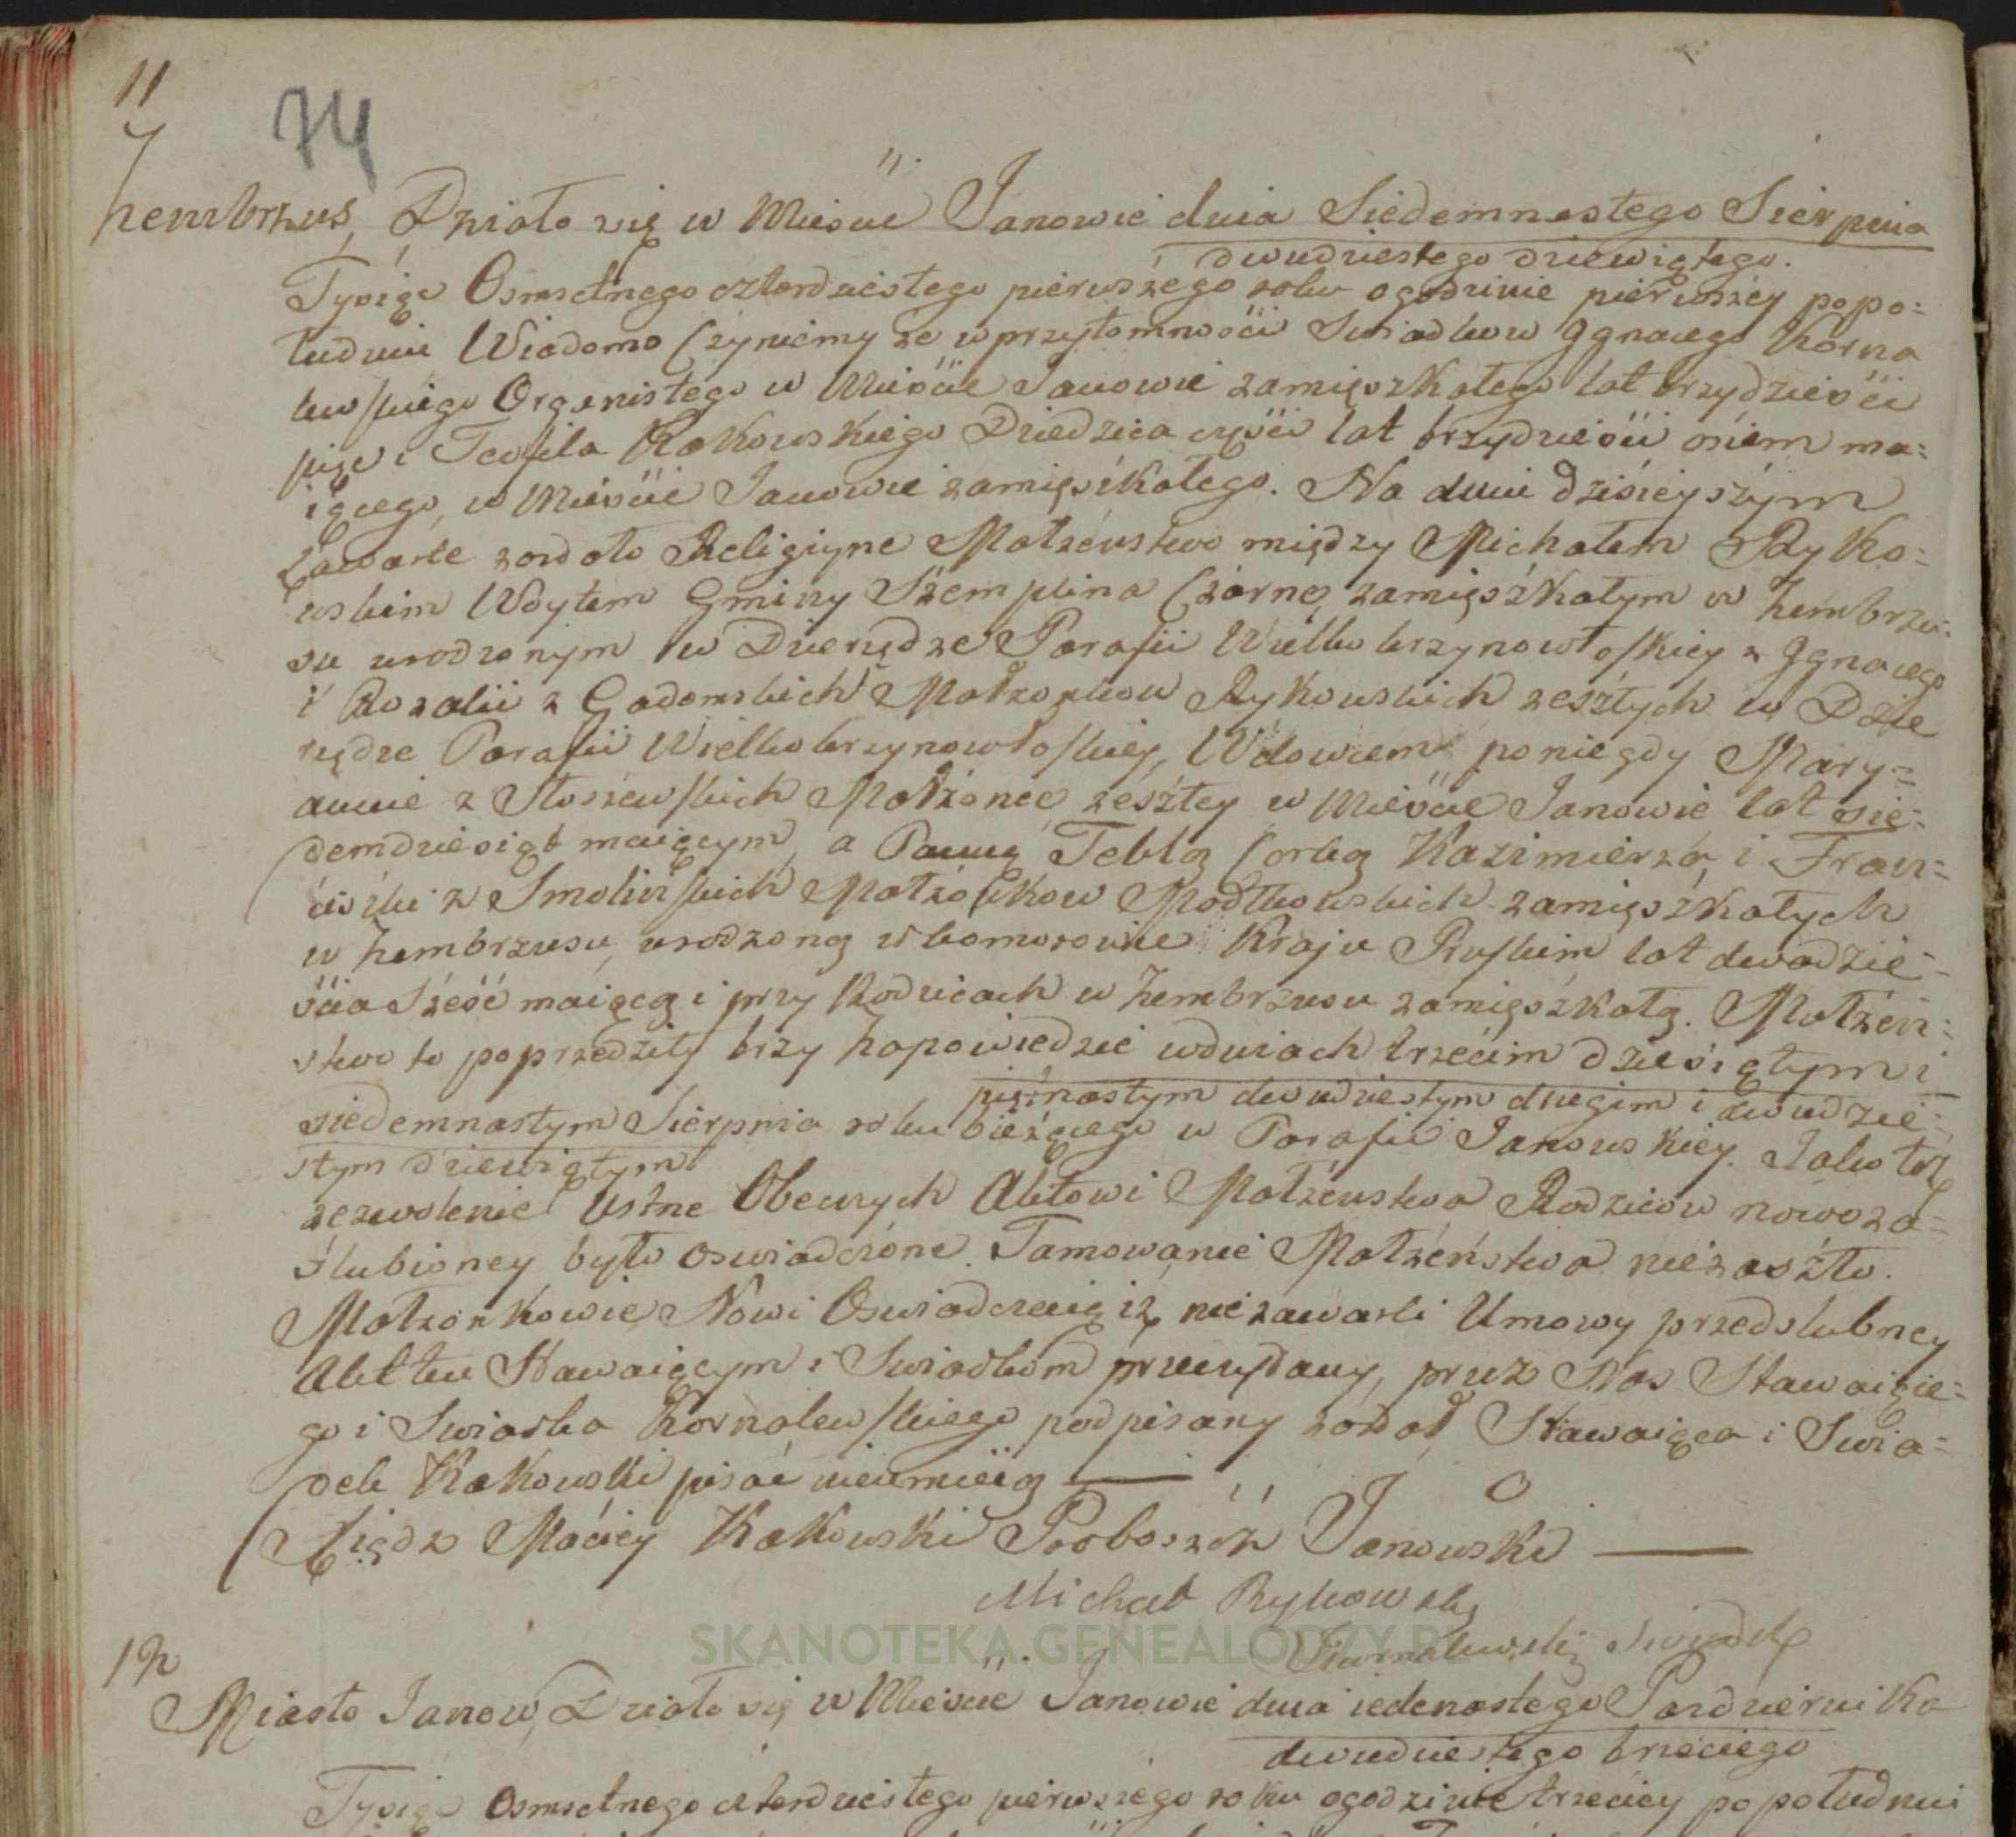 11
74
Zembrzus, Działo się w Mieście Janowie dnia Siedemnastego Sierpnia
dwudziestego dziewiątego.
Tysiąc Osmsetnego czterdziestego pierwszego roku o godzinie pierwszey popo=
łudniu Wiadomo Czyniemy że w przytomności Swiadkow Ignacego Korna
lewskiego Organistego w Mieście Janowie zamięszkałego lat trzydzieści
pięć i Teofila Kakowskiego Dziedzica części lat trzydzieści osiem ma=
iącego, w Mieście Janowie zamięszkałego. Na dniu dzisieyszym
Zawarte zostało Religiyne Małżeństwo między Michałem Ryko=
wskim Wóytem Gminy Szemplina Czarne, zamięszkałym w Zembrzu=
su urodzonym w Dzierzędze Parafii Wielko krzynowłoskiey z Ignacego
i Rozalii z Gadomskich Małżonkow Rykowskich zeszłych w Dzie
rzędze Parafii Wielko krzynowłoskiey, Wdowcem po niegdy Mary=
annie z Stoszewskich Małżonce zeszłey w Mieście Janowie lat sie=
demdziesiąt maiącym, a Panną Teklą Corką Kazimierza, i Fran=
ciszki z Smolinskich Małżonkow Modłkowskich zamięszkałych
w Zembrzusu, urodzoną w Komorowie Kraju Pruskim lat dwadzie=
ścia Sześć maiącą i przy Rodzicach w Zembrzusu zamięszkałą. Małżeń=
stwo to poprzedziły trzy Zapowiedzie w dniach trzecim dziesiątym i
piętnastym dwudziestym drugim i dwudzie=
siedemnastym Sierpnia roku bieżącego w Parafii Janowskiey. Jako też
stym dziewiątym
zezwolenie Ustne Obecnych Aktowi Małżeństwa Rodzicow nowo za=
ślubioney było oswiadczone. Tamowanie Małżeństwa nie zaszło.
Małżonkowie Nowi Oswiadczaią iż nie zawarli Umowy przedslubney
Akt ten Stawaiącym i Swiadkom przeczytany, przez Nas Stawaiące=
go i Swiadka Kornalewskiego podpisany został Stawaiąca i Swia=
dek Kakowski pisać nieumieią
Xiądz Maciey Kakowski Proboszcz Janowski
Michał Rykowski
Kornalewski Swiadek
SKANOTEKA.GENEALODZY.PL
12
Miasto Janow, Działo się w Mieście Janowie dnia iedenastego Pazdziernika
dwudziestego trzeciego
Tysiąc Osmsetnego czterdziestego pierwszego roku o godzinie trzeciey po południu